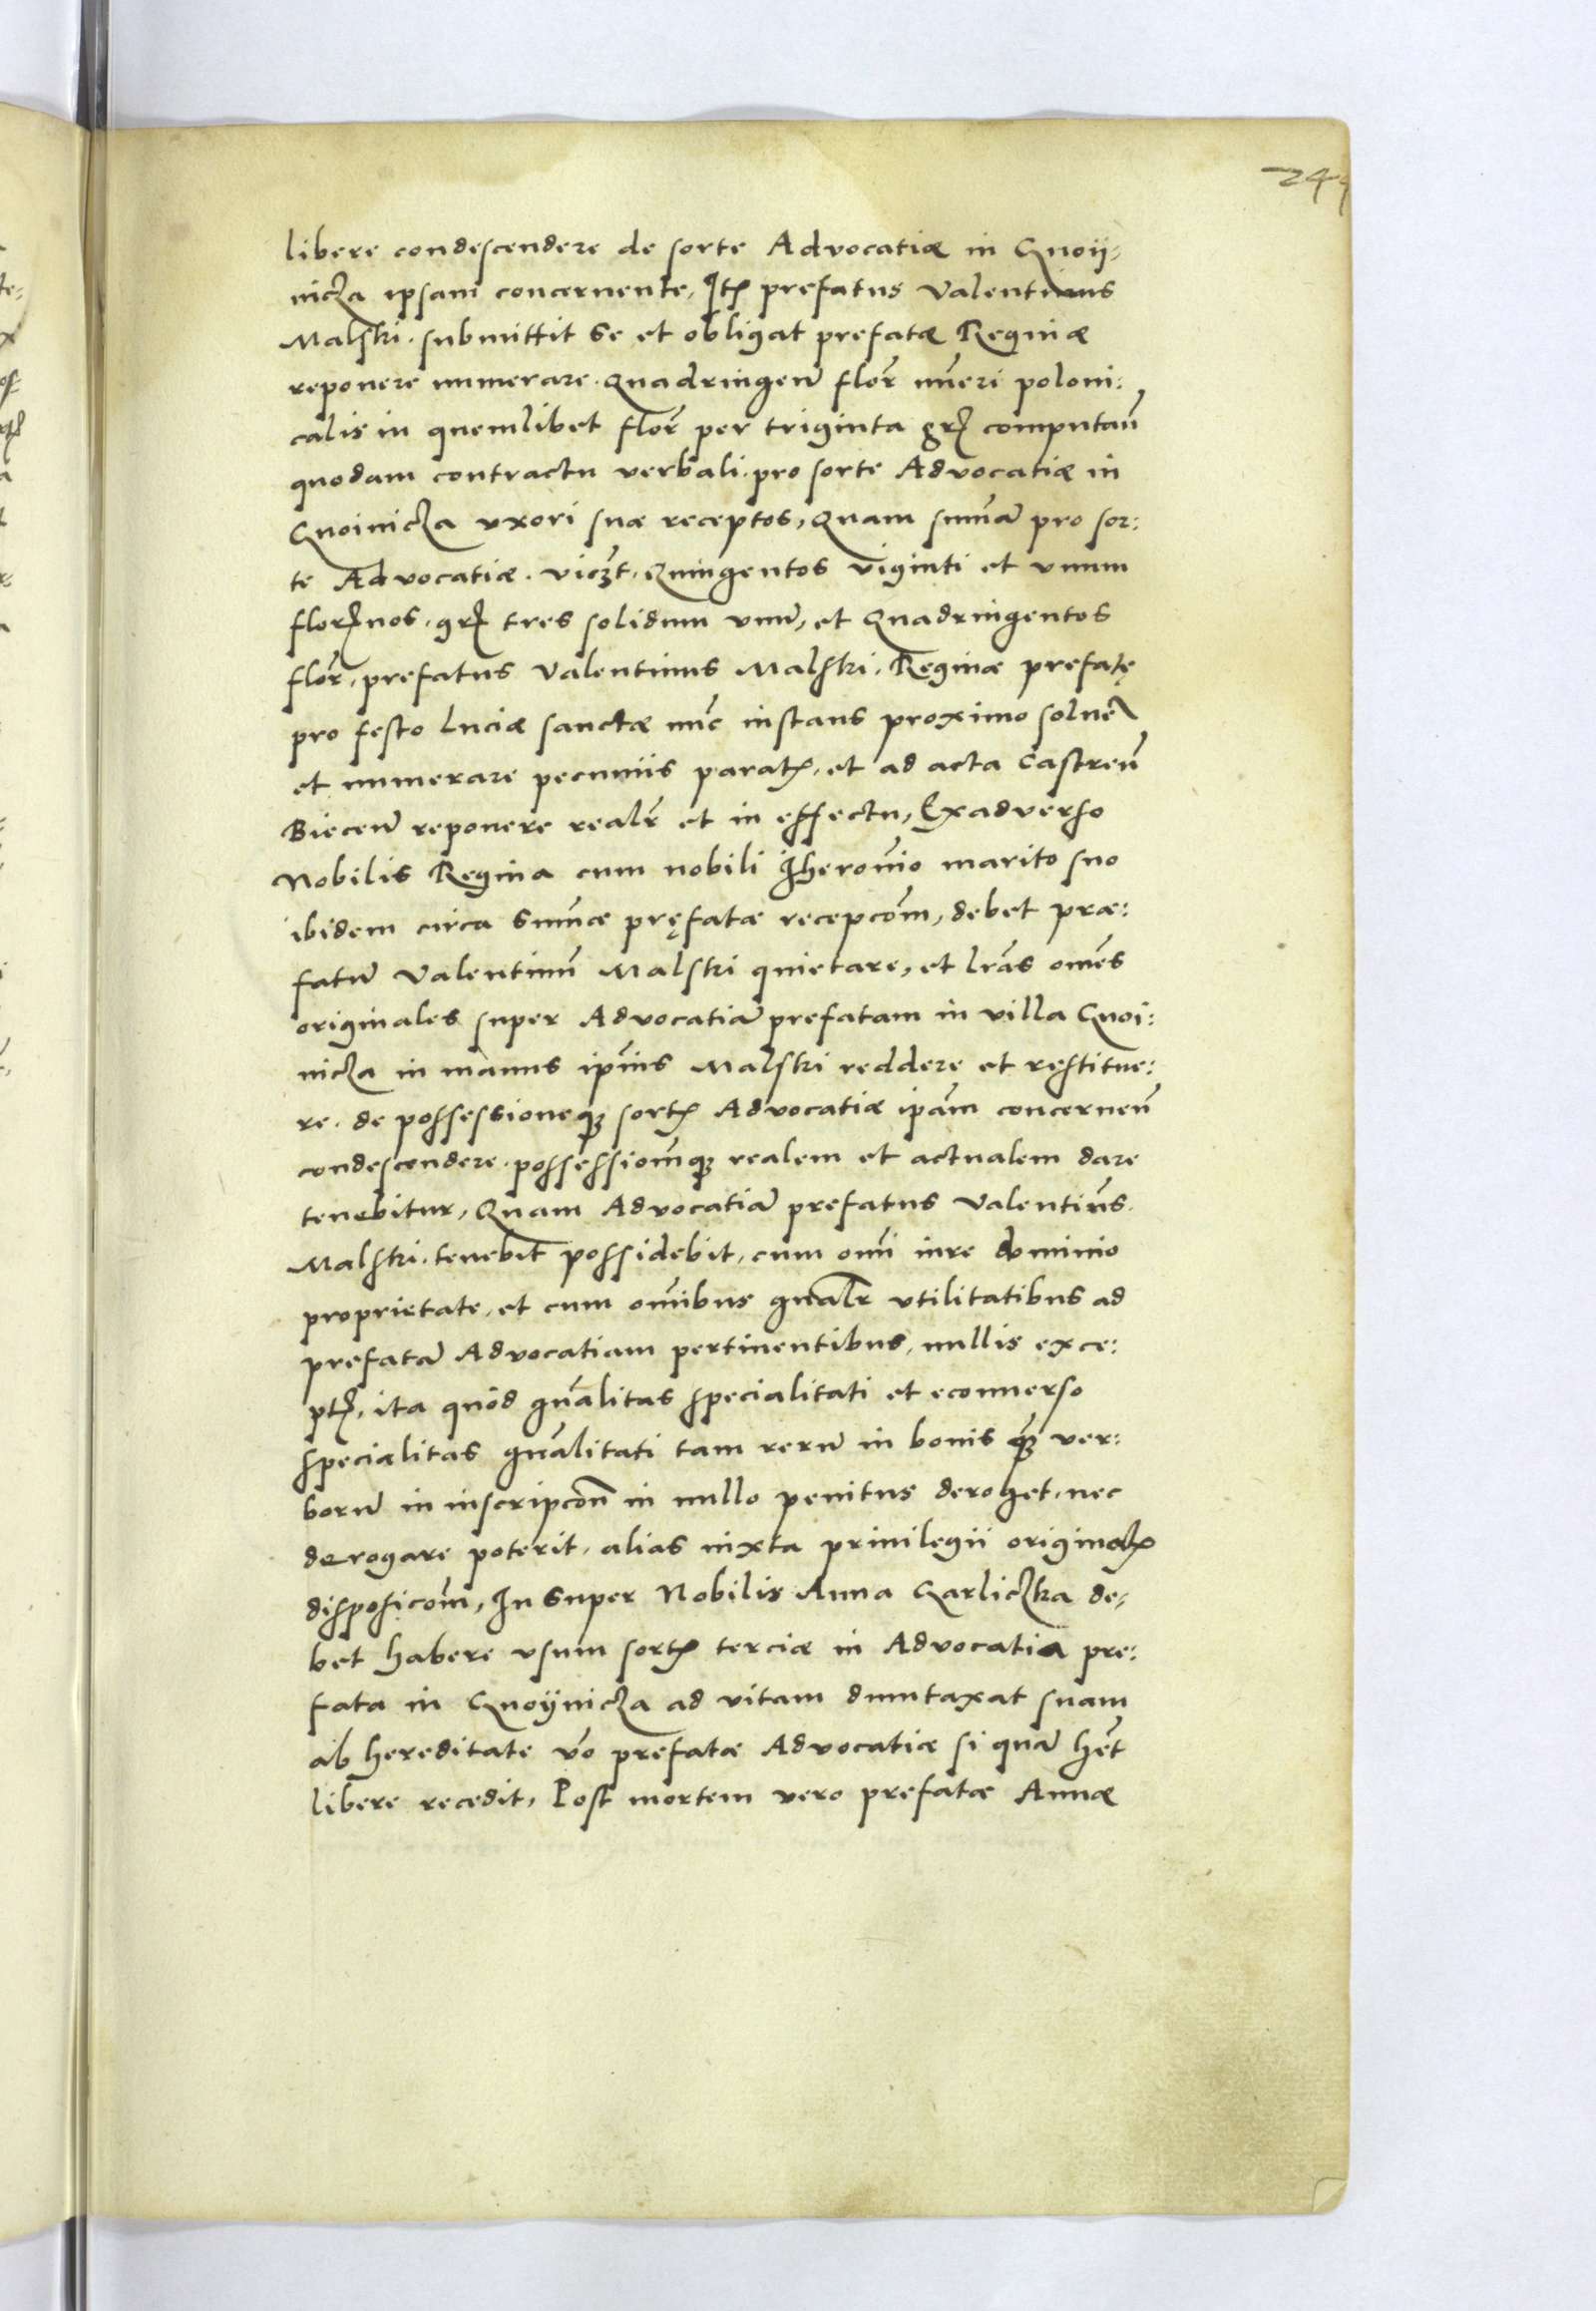 libere condescendere de sorte Advocatiæ in Gnoij-
niczа ipsam concernente, Itꝫ prefatus Valentinus
Malski. submittit se et obligat prefatæ Reginæ
reponere numerare. Quadringen̄ flor̄ nūeri poloni:
calis in quemlibet flor̄ per triginta grꝫ computan̄
quodam contractu verbali. pro sorte Advocatiæ in
Gnoinicza uxori suæ receptos, Quam sum̄ā pro sor:
te Advocatiæ. viczt. Quingentos viginti et vnum
florꝫnos. grꝫ tres solidum vnū, et Quadringentos
flor̄. prefatus Valentinus Malski. Reginæ prefatę
pro festo Luciæ sanctæ nūc instans proximo soluer̄
et numerare pecuniis paratꝫ. et ad acta Castren̄
Biecen̄ reponere realr̄ et in effectu, Exadverso
Nobilis Regina cum nobili Iheronīo marito suo
ibidem circa sum̄æ pręfatæ recepcōm, debet præ:
fatū Valentinū Malski quietare, et lr̄as om̄es
originales super Advocatiā prefatam in villa Gnoi:
nicza in manus ip̄ius Malski reddere et restitue:
re. de possessioneqꝫ sortꝫ Advocatiæ ip̄am concernen̄
condescendere. possessiom̄qꝫ realem et actualem dare
tenebitur, Quam Advocatiā prefatus Valentin̄s.
Malski. tenebit possidebit, cum om̄i iure dominio
proprietate, et cum om̄ibus gn̄alr̄ vtilitatibus ad
prefatā Advocatiam pertinentibus, nullis exce:
ptꝫ, ita quòd gn̄alitas specialitati et econuerso
specialitas gn̄alitati tam rerū in bonis qꝫ ver:
borū in inscripcōn̄ in nullo penitus deroget, nec
derogare poterit, alias iuxta priuilegii originalꝫ
disposicōm, In super Nobilis Anna Garliczka de-
bet habere vsum sortꝫ terciæ in Advocatia pre:
fata in Gnoijnicza ad vitam duntaxat suam
ab hereditate v̄o prefatæ Advocatiæ si quā hēt
libere recedit, Post mortem vero prefatæ Annæ